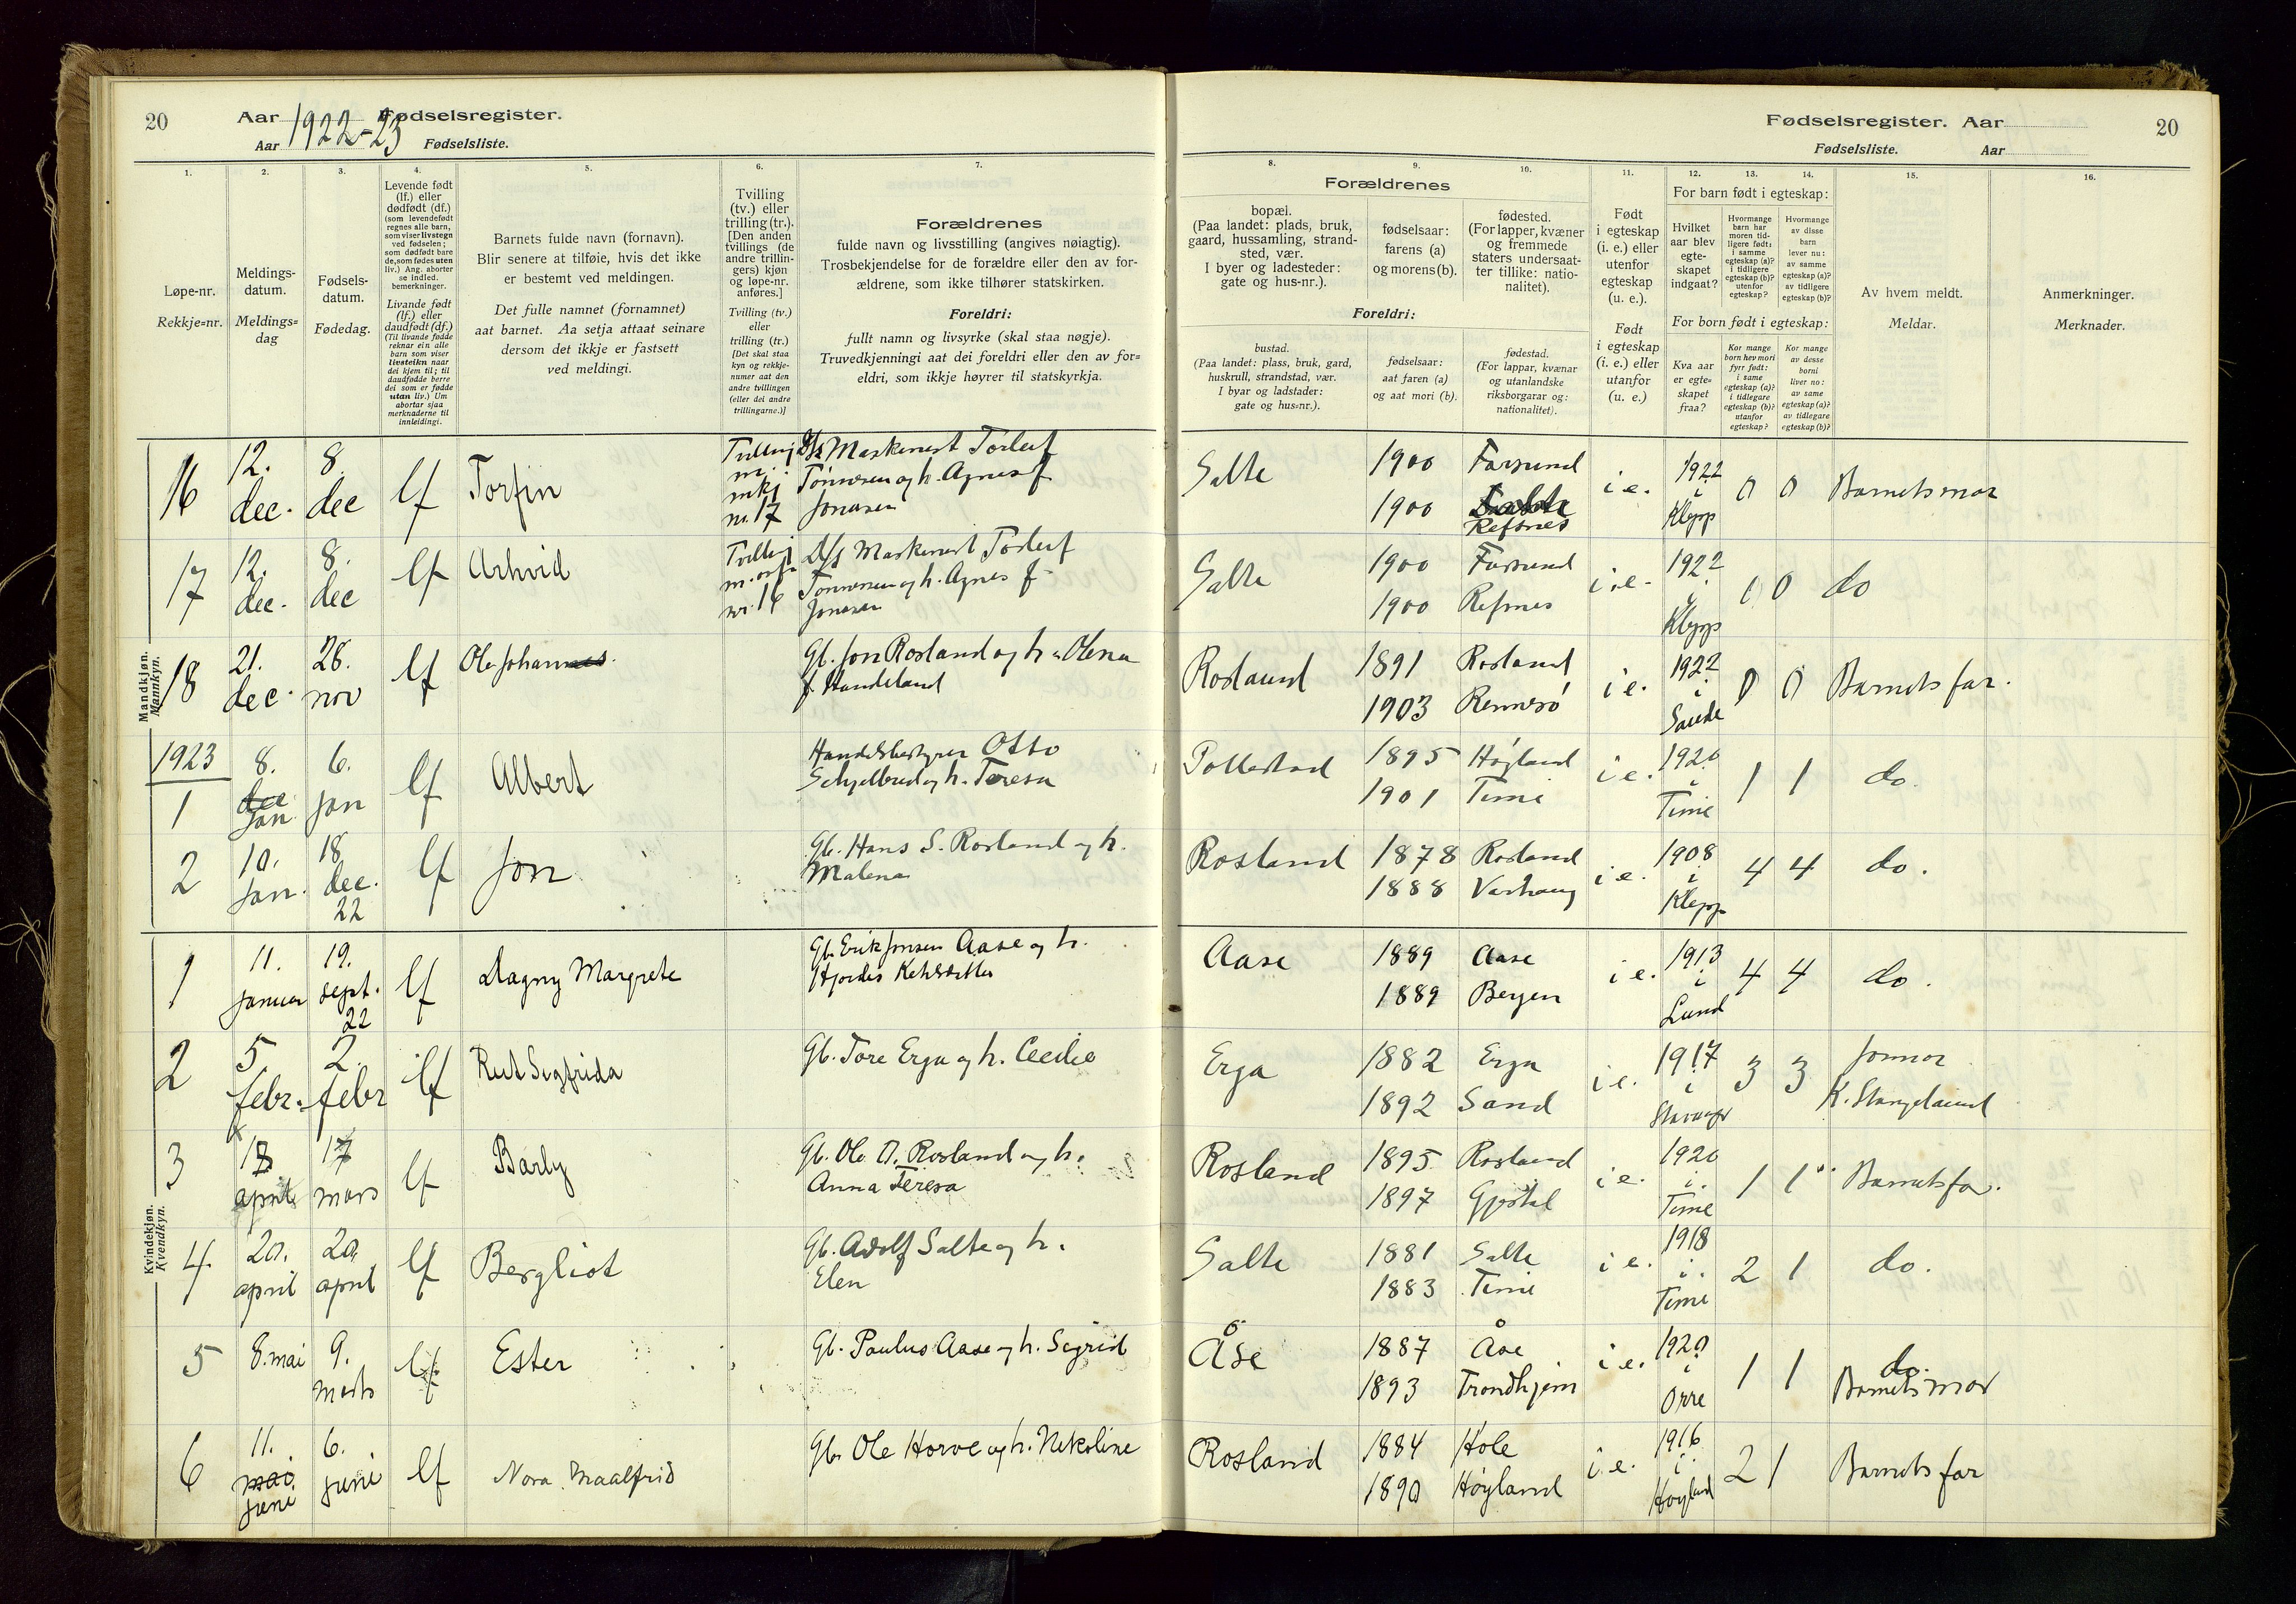 20 Aar 1922-23 Fødselsregister.
Aar Fødselsliste.
Fødselsregister. Aar 20
Fødselsliste. Aar
1. 2. 3. 4. 5. 6. 7.
Løpe-nr.
Rekkje=nr.
Meldings-
datum.
Meldings=
dag
Fødsels-
datum.
Fødedag.
Levende født
(lf.) eller
dødfødt (df.)
(som levendefødt
regnes alle barn,
som viser livstegn
ved fødselen;
som dødfødt bare
de, som fødes uten
liv.) Ang. aborter
se indled.
bemerkninger.
Livande født
(lf.) eller
daudfødt (df.)
(Til livande fødde
reknar ein alle
barn som viser
livsteikn naar
dei kjem til; til
daudfødde berre
dei som er fødde
utan liv.) Um
abortar sjaa
merknaderne til
innleidingi.
Barnets fulde navn (fornavn).
Blir senere at tilføie, hvis det ikke
er bestemt ved meldingen.
Det fulle namnet (fornamnet)
aat barnet. Aa setja attaat seinare
dersom det ikkje er fastsett
ved meldingi.
Tvilling
(tv.) eller
trilling (tr.).
[Den anden
tvillings (de
andre trillin-
gers) kjøn
og løpe-nr.
anføres.]
Tvilling (tv.)
eller
trilling (tr.)
[Det skal staa
kyn og rekkje-
numer aat den
andre tvillingen
(eller dei andre
trillingarne.)]
Forældrenes
fulde navn og livsstilling (angives nøiagtig).
Trosbekjendelse for de forældre eller den av for-
ældrene, som ikke tilhører statskirken.
Foreldri:
fullt namn og livsyrke (skal staa nøgje).
Truvedkjenningi aat dei foreldri eller den av for=
eldri, som ikkje høyrer til statskyrkja.
8. 9. 10. 11. 12. 13. 14. 15. 16.
Forældrenes
bopæl.
(Paa landet: plads, bruk,
gaard, hussamling, strand-
sted, vær.
I byer og ladesteder:
gate og hus-nr.).
fødselsaar:
farens (a)
og morens (b).
fødested.
(For lapper, kvæner
og fremmede
staters undersaat-
ter tillike: natio-
nalitet).
Foreldri:
bustad.
(Paa landet: plass, bruk, gard,
huskrull, strandstad, vær.
I byar og ladstader:
gate og hus=nr.).
fødselsaar:
aat faren (a)
og aat mori (b).
fødestad.
(For lappar, kvænar
og utanlandske
riksborgarar og:
nationalitet).
Født
i egteskap
(i. e.) eller
utenfor
egteskap
(u. e.).
Født
i egteskap
(i. e.) eller
utanfor
(u. e.)
For barn født i egteskap:
Hvilket
aar blev
egte-
skapet
indgaat?
Hvormange
barn har
moren tid-
ligere født:
i samme
egteskap (a)?
i tidligere
egteskap (b)?
utenfor
egteskap?
Hvormange
av disse
barn
lever nu:
av samme
egteskap (a)?
av tidligere
egteskap (b)?
For born født i egteskap:
Kva aar
er egte=
skapet
fraa?
Kor mange
born hev mori
fyrr født:
i same
egteskap (a)?
i tidlegare
egteskap (b)?
utanfor
egteskap?
Kor mange
av desse
borni
liver no:
av same
egteskap (a)?
av tidlegare
egteskap (b)?
Av hvem meldt.
Meldar.
Anmerkninger.
Merknader.
Mandkjøn.
Mannkyn.
16 12. dec. 8. dec lf Torfin Tvilling m. nr. 17 Maskinist Torleif
Tønnesen og h. Agnes f
Jonasen Salte 1900 Farsund 1900 Refsnes i e. 1922 i Klepp 0 0 Barnets mor
17 12. dec. 8. dec lf Arhvid Tvilling nr. 16 D/s Maskinist Torleif
Tønnesen og h. Agnes f
Jonasen Salte 1900 Farsund 1900 Refsnes i e. 1922 i Klepp 0 do
18 21. dec. 28. nov lf Ole Johannes Gb. Jon Rosland og h. Olena
f. Handeland Rosland 1891 Rosland 1903 Rennesø i e. 1922 i Saude 0 0 Barnets far.
1923
1 8. dec jan 6. jan lf Albert Handelsbestyrer Otto
Schjelbred og h. Teresa Pollestad 1895 Høyland 1901 Time i e. 1920 i Time 1 1 do.
2 10. jan. 18 dec. 22 lf Jon Gb. Hans S. Rosland og h.
Malena Rosland 1878 Rosland 1888 Varhaug i e. 1908 i Klepp 4 4 do.
Kvindekjøn.
Kvendkyn.
1 11. januar 19. sept. 22 lf Dagny Margrete Gb. Erik Jonsen Aase og h.
Hjørdis Aase 1889 Aase 1889 Bergen i e. 1913 i Lund 4 4 do.
2 5 febr. 2. febr lf Rut Sigfrida Gb. Tore Erga og h. Cecilie Erga 1882 Erga 1892 Sand i e. 1917 i Stavanger 3 3 Jormor
K. Stangeland
3 april mars lf Barly Gb. Ole O. Rosland og h.
Anna Teresa Rosland 1895 Rosland 1897 Gjestal i e. 1920 i Time 1 1 Barnets far.
4. 20. april 20. april lf Bergliot Gb. Adolf Salte og h.
Elen Salte 1881 Salte 1883 Time i e. 1918 i Time 2 1 do.
5 8. mai 9. marts lf Ester Gb. Paulus Aase og h. Sigrid Åse 1887 Åse 1893 Trondhjem i e. 1920 i Orre 1 1 do.
Barnets mor
6 11. mai juni 6. juni lf Nora Maalfrid Gb. Ole Horve og h. Nikoline Rosland 1884 Hole 1890 Høyland i. e. 1916 i Høyland 2 1 Barnets far